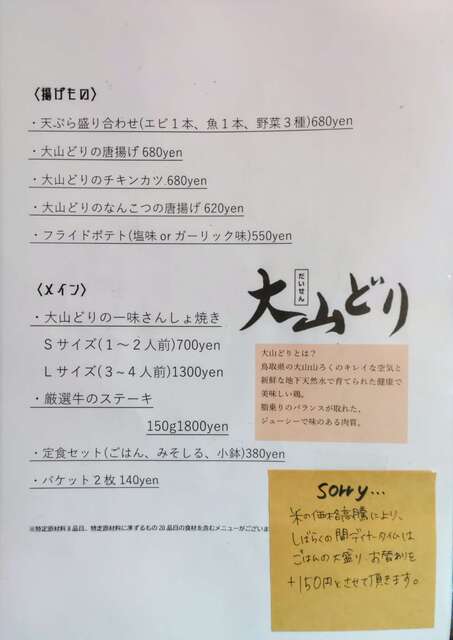 〈揚げもの〉
・天ぷら盛り合わせ(エビ１本、魚１本、野菜３種)680yen
・大山どりの唐揚げ 680yen
・大山どりのチキンカツ.680yen
・大山どりのなんこつの唐揚げ 620yen
・フライドポテト(塩味 or ガーリック味)550yen
〈メイン〉
・大山どりの一味さんしょ焼き
Ｓサイズ(１〜２人前)700yen
Ｌサイズ(３〜４人前)1300yen
・厳選牛のステーキ
150g1800yen
・定食セット(ごはん、みそしる、小鉢)380yen
・バケット２枚 140yen
だいせん
大山どり
大山どりとは？
鳥取県の大山山ろくのキレイな空気と
新鮮な地下天然水で育てられた健康で
美味しい鶏。
脂乗りのバランスが取れた、
ジューシーで味のある肉質。
※特定原材料 8 品目、特定原材料に準ずるもの 20 品目の食材を含むメニューがございま
Sorry...
米の価格高騰により、
しばらくの間ディナータイムは
ごはんの大盛り、お替わりを
+150円とさせて頂きます。